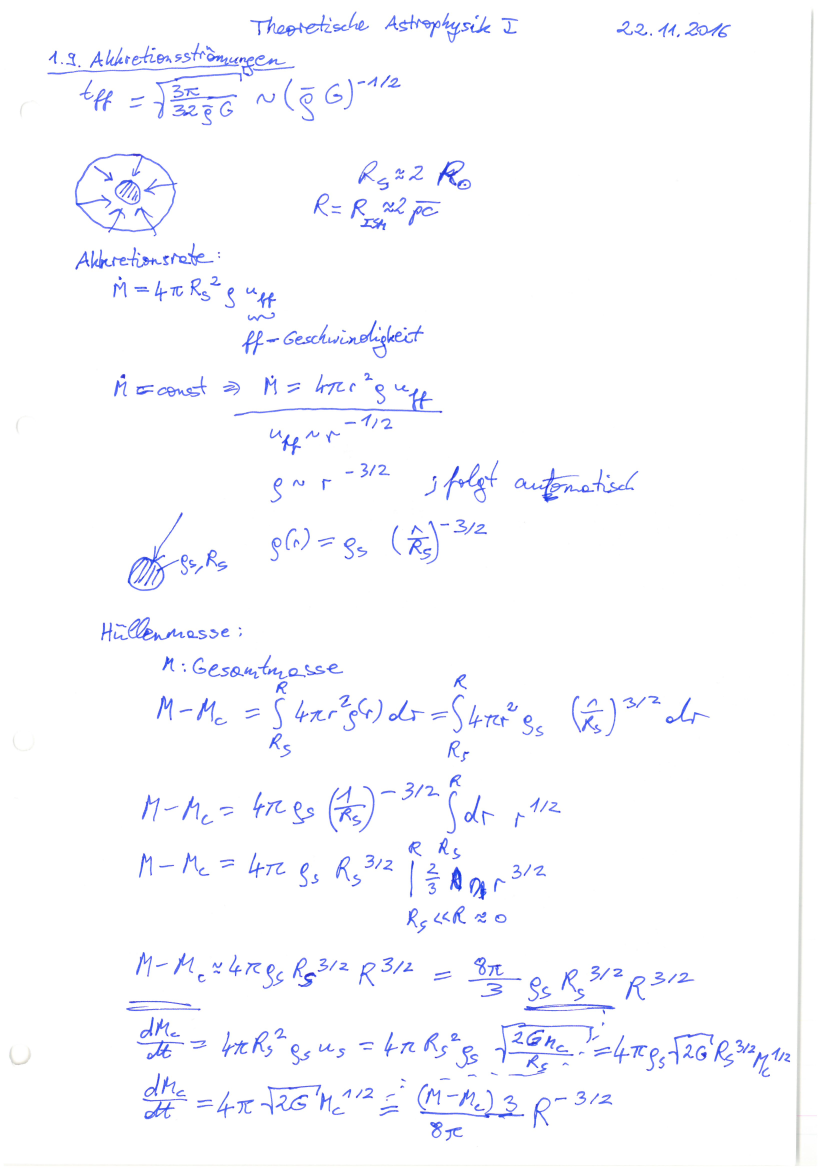 Theoretische Astrophysik I 22.11.2016
1.9. Akkretionsströmungen
t_ff = √(3π / 32 ρ̄ G) ~ (ρ̄ G)^-1/2
R_s ≈ 2 R_⊙
R = R_ISM ≈ 2 pc
Akkretionsrate:
Ṁ = 4π R_s² ρ u_ff
ff-Geschwindigkeit
Ṁ = const ⇒ Ṁ = 4πr² ρ u_ff
u_ff ~ r^-1/2
ρ ~ r^-3/2 ; folgt automatisch
ρ(r) = ρ_s (r/R_s)^-3/2
ρ_s, R_s
Hüllenmasse:
M: Gesamtmasse
M-M_c = ∫_{R_s}^{R} 4πr² ρ(r) dr = ∫_{R_s}^{R} 4πr² ρ_s (r/R_s)^3/2 dr
M-M_c = 4π ρ_s (1/R_s)^-3/2 ∫_{R_s}^{R} dr r^1/2
M-M_c = 4π ρ_s R_s^3/2 |^R 2/3 r^3/2
R_s << R ≈ 0
M-M_c ≈ 4π ρ_s R_s^3/2 R^3/2 = 8π/3 ρ_s R_s^3/2 R^3/2
dM_c/dt = 4πR_s² ρ_s u_s = 4π R_s² ρ_s √(2GM_c / R_s) = 4π ρ_s √2G R_s^3/2 M_c^1/2
dM_c/dt = 4π √2G M_c^1/2 = (M-M_c) 3 / 8π R^-3/2